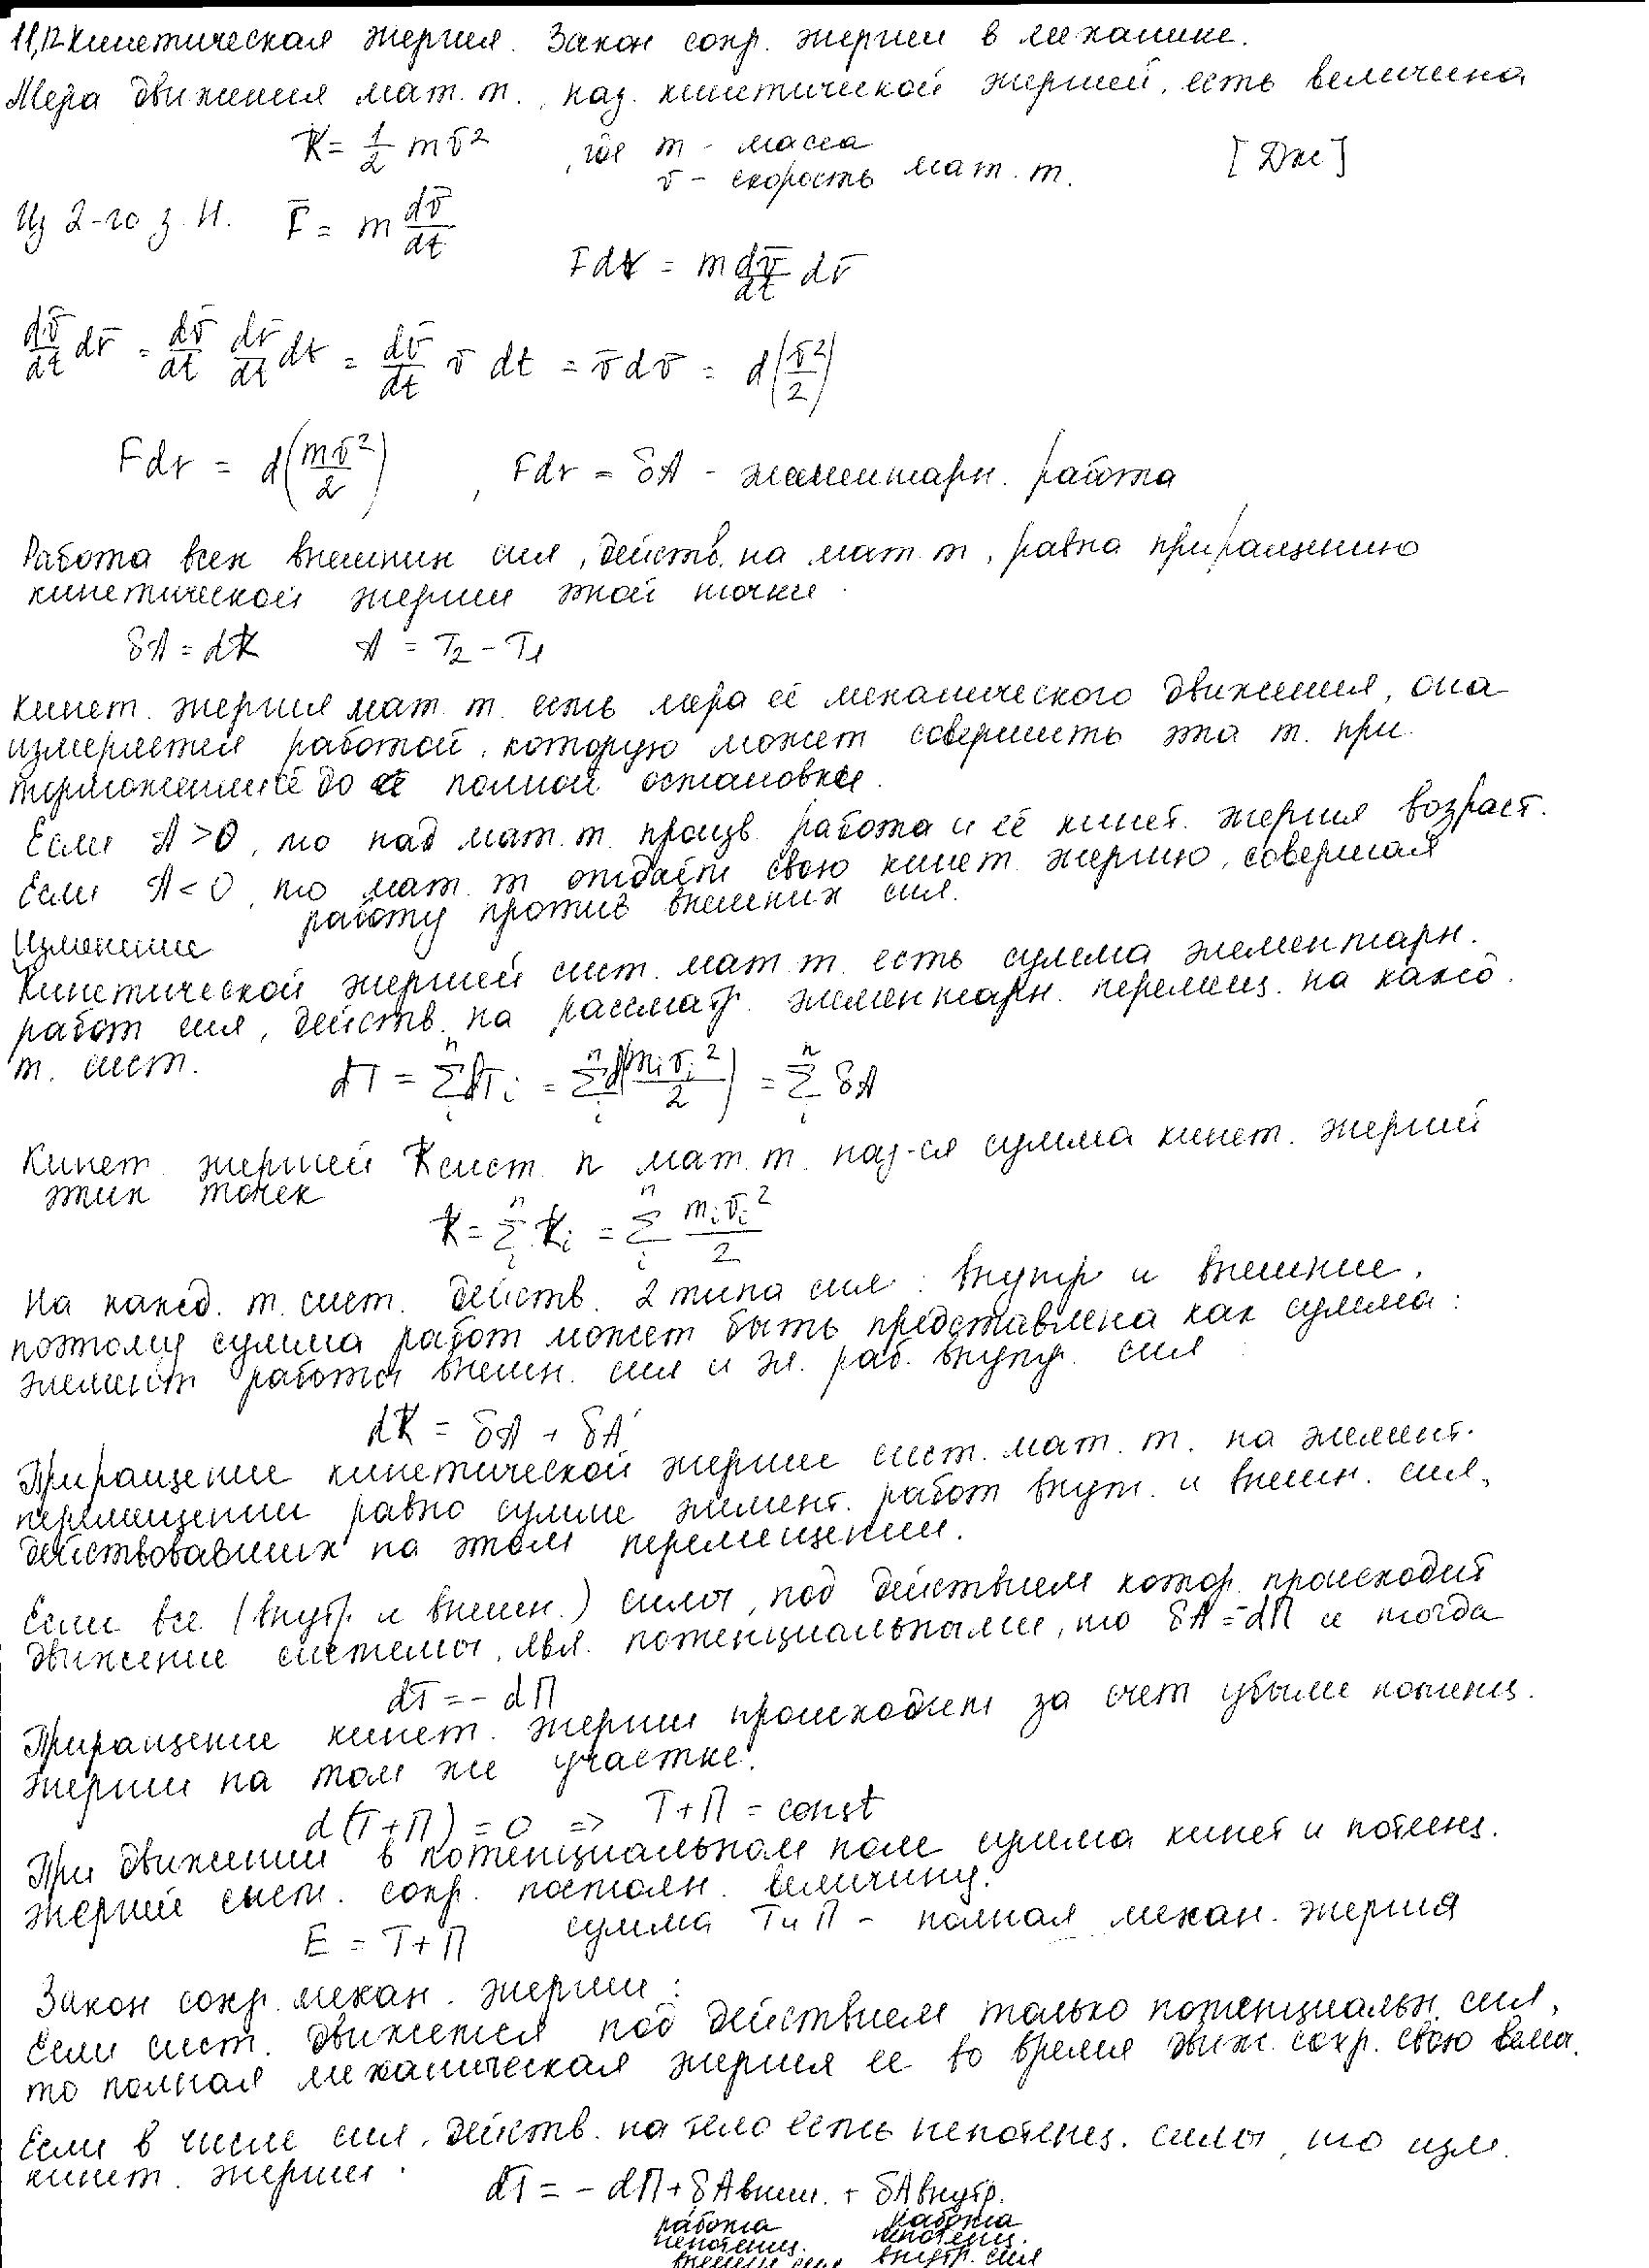 11,12 Кинетическая энергия. Закон сохр. энергии в механике.
Мера движения мат. т., наз. кинетической энергией, есть величина
K = 1/2 mv̄² , где m - масса [Дж]
v̄ - скорость мат. т.
Из 2-го з. Н. F̄ = m dv̄/dt
Fdr = m dv̄/dt dr̄
dv̄/dt dr̄ = dv̄/dt dr̄/dt dt = dv̄/dt v̄ dt = v̄dv̄ = d(v̄²/2)
Fdr = d(mv̄²/2) , Fdr = δA - элементарн. работа
Работа всех внешних сил, действ. на мат. т, равна приращению
кинетической энергии этой точки.
δA = dK A = T₂ - T₁
Кинет. энергия мат. т. есть мера её механического движения, она
измеряется работой, которую может совершить эта т. при
торможении её до полной остановки.
Если A > 0, то над мат. т. произв. работа и её кинет. энергия возраст.
Если A < 0, то мат. т отдаёт свою кинет. энергию, совершая
работу против внешних сил.
Изменение
Кинетической энергией сист. мат. т. есть сумма элементарн.
работ сил, действ. на рассматр. элементарн. перемещ. на кажд.
т. сист.
dT = Σⁿᵢ dTᵢ = Σⁿᵢ d(mᵢv̄ᵢ²/2) = Σⁿᵢ δA
Кинет. энергией K сист. n мат. т. наз-ся сумма кинет. энергий
этих точек
K = Σⁿᵢ Kᵢ = Σⁿᵢ mᵢv̄ᵢ²/2
На кажд. т. сист. действ. 2 типа сил: внутр и внешние,
поэтому сумма работ может быть представлена как сумма:
элемент работа внешн. сил и эл. раб. внутр. сил
dK = δA + δA'
Приращение кинетической энергии сист. мат. т. на элемент.
перемещении равно сумме элемент. работ внут. и внешн. сил,
действовавших на этом перемещении.
Если все (внутр. и внешн.) силы, под действием котор. происходит
движение системы, явл. потенциальными, то δA = -dП и тогда
dT = - dП
Приращение кинет. энергии происходит за счет убыли потенц.
энергии на том же участке.
d(T+П) = 0 => T+П = const
При движении в потенциальном поле сумма кинет и потенц.
энергий сист. сохр. постоян. величину.
E = T+П сумма T и П - полная механ. энергия
Закон сохр. механ. энергии:
Если сист. движется под действием только потенциальн. сил,
то полная механическая энергия ее во время движ. сохр. свою велич.
Если в числе сил, действ. на тело есть непотенц. силы, то изм.
кинет. энергии.
dT = - dП + δAвнеш. + δAвнутр.
работа работа
непотенц. непотенц.
внешн сил внутр. сил